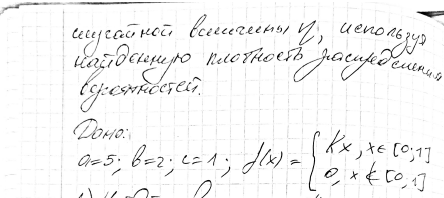 случайной величины η, используя
найденную плотность распределения
вероятностей.
Дано:
a=5; b=2; c=1; f(x) = { Kx, x∈[0;1]
0, x∉[0,1]